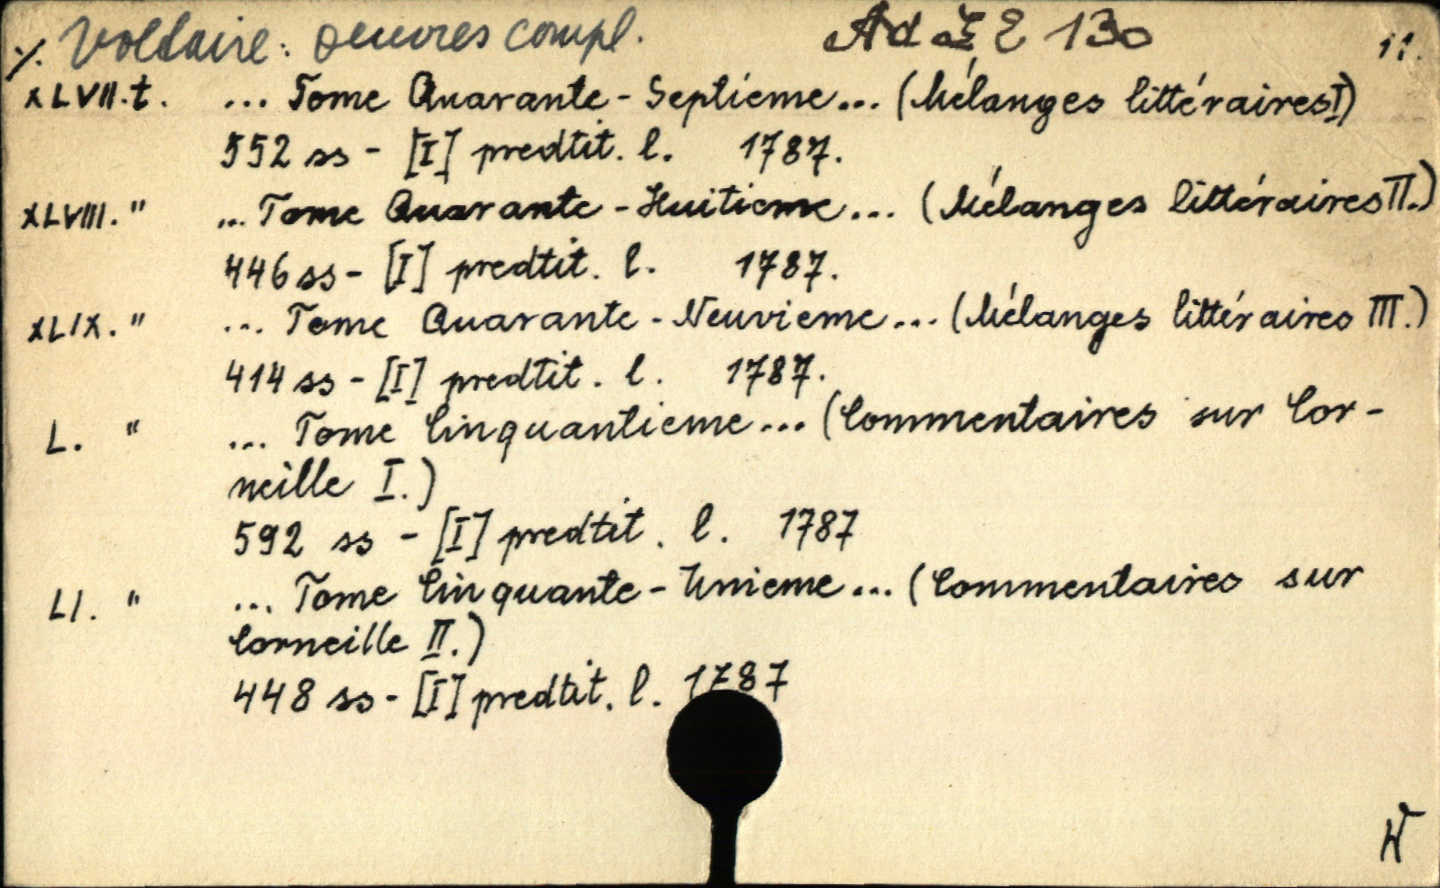 %. Voltaire: Oeuvres compl. Ad ŽE 130 11.
XLVII.t. ... Tome Quarante-Septieme... (Mélanges littéraires I)
552 ss - [I] predtit. l. 1787.
XLVIII. " ... Tome Quarante-Huitieme... (Mélanges littéraires II.)
446 ss - [I] predtit. l. 1787.
XLIX. " ... Tome Quarante-Neuvieme... (Mélanges littéraires III.)
414 ss - [I] predtit. l. 1787.
L. " ... Tome Cinquantieme... (Commentaires sur Cor-
neille I.)
592 ss - [I] predtit. l. 1787
LI. " ... Tome Cinquante-Unieme... (Commentaires sur
Corneille II.)
448 ss - [I] predtit. l. 1787